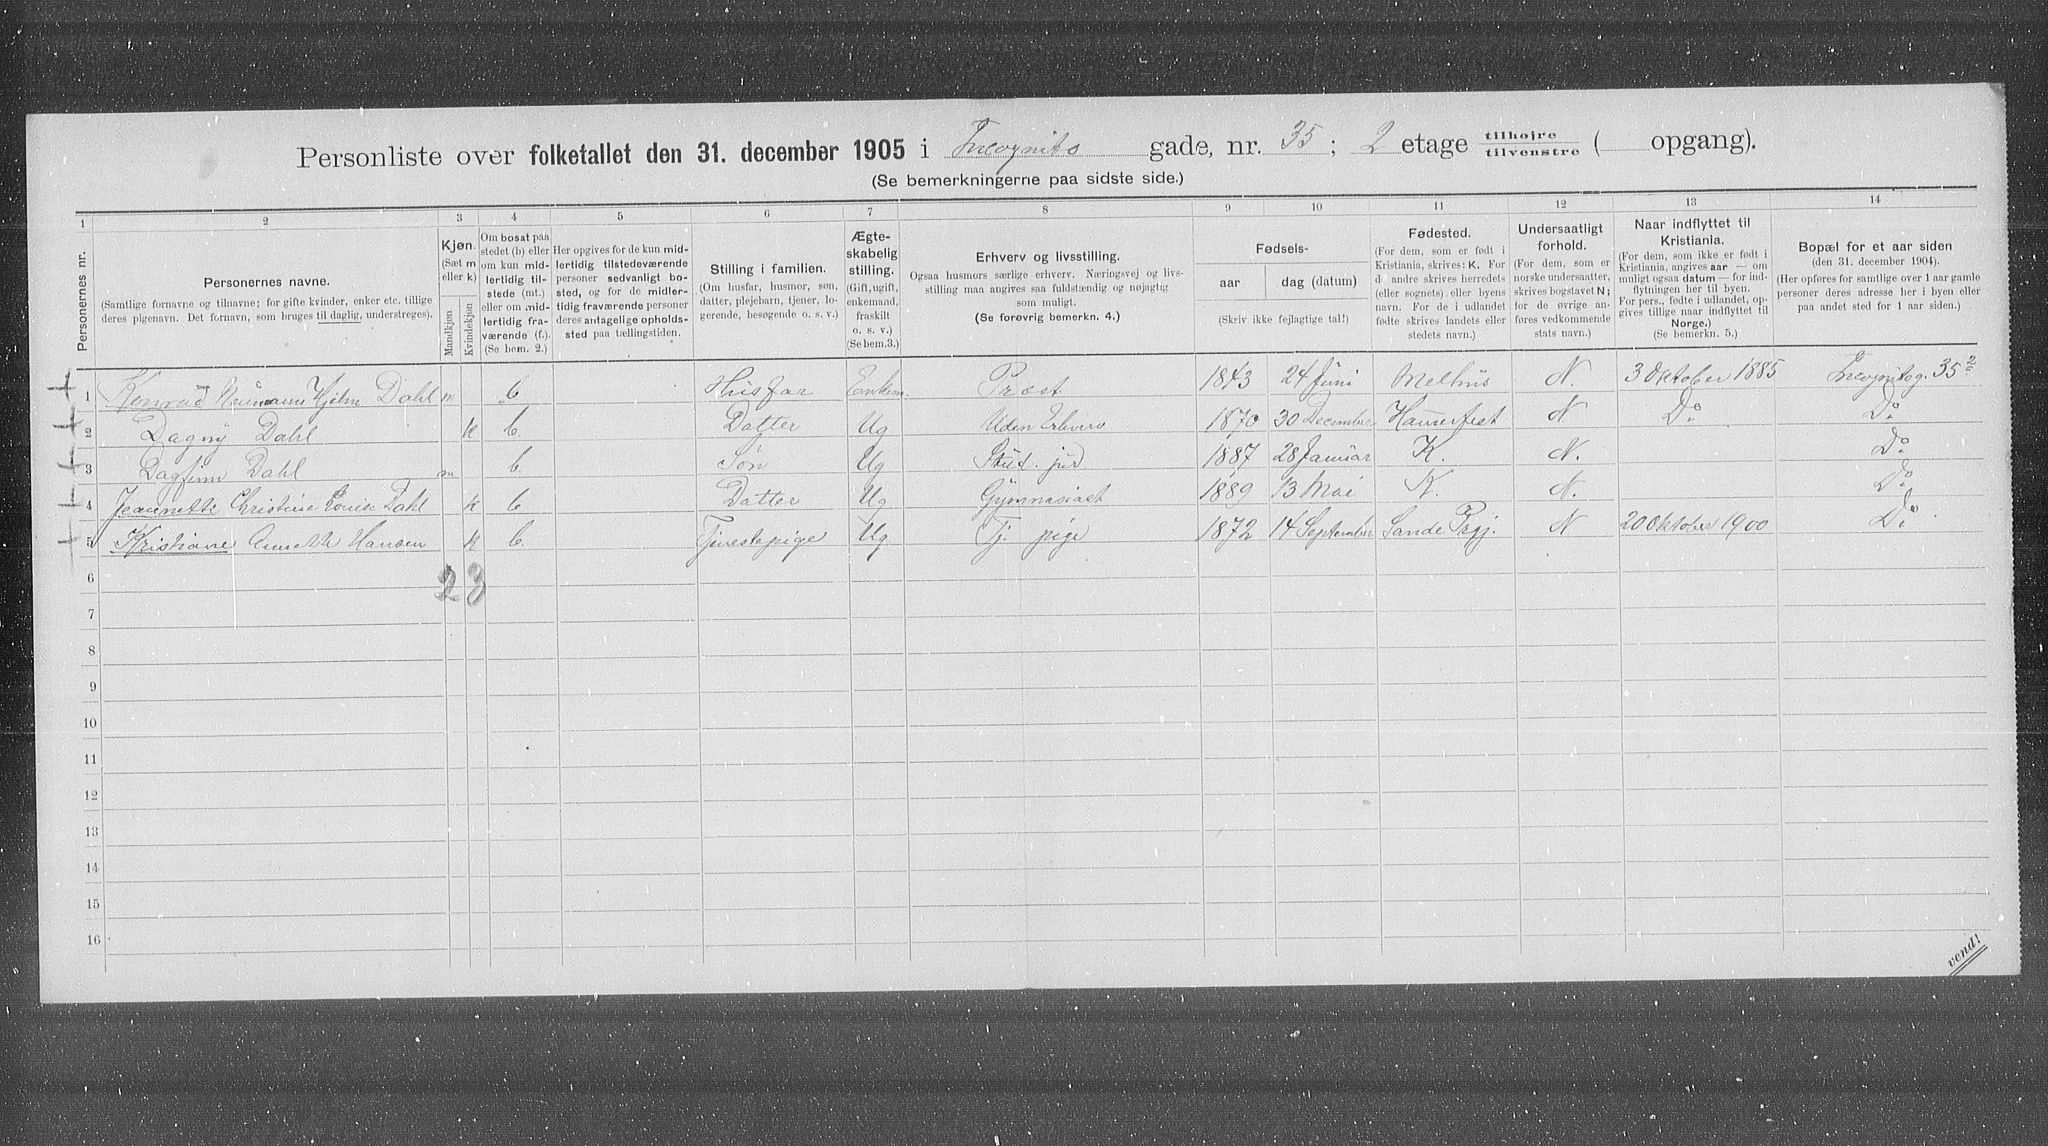 Personliste over folketallet den 31. december 1905 i Incognito gade, nr. 35; 2 etage tilhøjre tilvenstre ( opgang).
(Se bemerkningerne paa sidste side.)
1 2 3 4 5 6 7 8 9 10 11 12 13 14
Personernes nr.
Personernes navne.
(Samtlige fornavne og tilnavne; for gifte kvinder, enker etc. tillige deres pigenavn. Det fornavn, som bruges til daglig, understreges).
Kjøn.
(Sæt m eller k)
Mandkjøn
Kvindekjøn
Om bosat paa stedet (b) eller om kun midlertidig tilstede (mt.) eller om midlertidig fraværende (f.). (Se bem. 2.)
Her opgives for de kun midlertidig tilstedeværende personer sedvanligt bosted, og for de midlertidig fraværende personer deres antagelige opholdssted paa tællingstiden.
Stilling i familien.
(Om husfar, husmor, søn, datter, plejebarn, tjener, logerende, besøgende o. s. v.)
Ægteskabelig stilling.
(Gift, ugift, enkemand, fraskilt o. s. v.)
(Se bem.3.)
Erhverv og livsstilling.
Ogsaa husmors særlige erhverv. Næringsvej og livsstilling maa angives saa fuldstændig og nøjagtig som muligt.
(Se forøvrig bemerkn. 4.)
Fødsels-
aar
dag (datum)
(Skriv ikke fejlagtige tal!)
Fødested.
(For dem, som er født i Kristiania, skrives: K. For d. andre skrives herredets (eller sognets) eller byens navn. For de i udlandet fødte skrives landets eller stedets navn.)
Undersaatligt forhold.
(For dem, som er norske undersaatter, skrives bogstavet N; for de øvrige anføres vedkommende stats navn.)
Naar indflyttet til Kristiania.
(For dem, som ikke er født i Kristiania, angives aar — om muligt ogsaa datum — for indflytningen her til byen. For pers., fødte i udlandet, opgives tillige naar indflyttet til Norge.)
(Se bemerkn. 5.)
Bopæl for et aar siden
(den 31. december 1904).
(Her opføres for samtlige over 1 aar gamle personer deres adresse her i byen eller paa andet sted for 1 aar siden.)
1 Konrad Neumann Hjelm Dahl m b Husfar Enkem. Præst 1843 24 Juni Melhus N. 3 Oktober 1885 Incognitog. 35 2
2 Dagny Dahl k b. Datter Ug Uden Erhverv 1870 30 December Hammerfest N Do Do
3 Dagfinn Dahl m b. Søn Ug Stud. jur 1887 28 Januar K. N. Do
4 Jeannette Christine Louise Dahl k b Datter Ug Gymnasiast 1889 13 Mai K. N. Do
5 Kristiane Annette Hansen k b. Tjenestepige Ug Tj. pige 1872 14 September Sande Prgj. N 20 Oktober 1900 Do
6 2 3
7
8
9
10
11
12
13
14
15
16
vend!